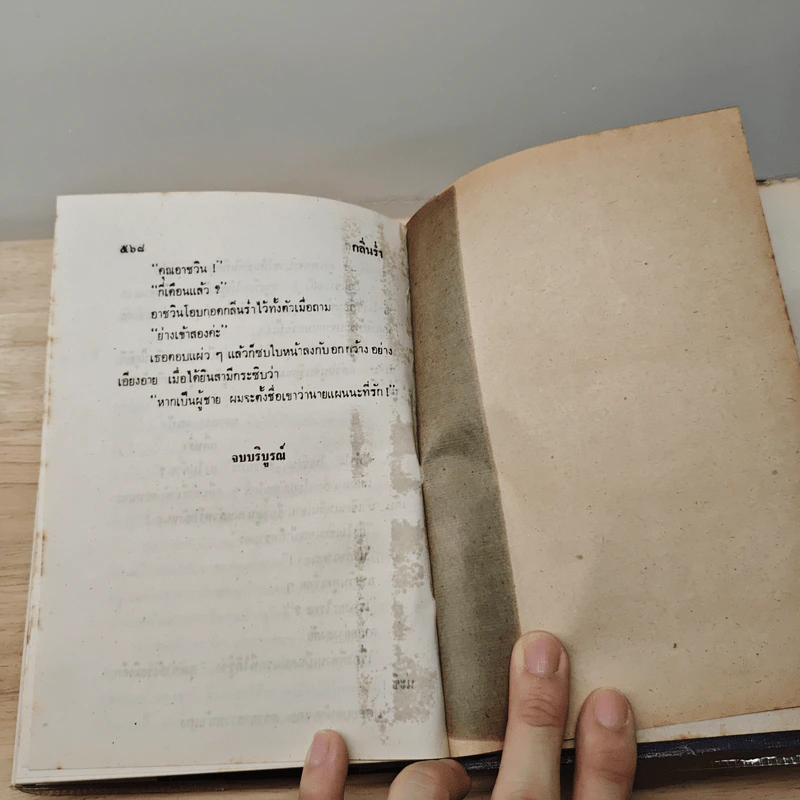 ๕๖๘ กลิ่นร่ำ
“คุณอาชวิน !”
“กี่เดือนแล้ว ?”
อาชวินโอบกอดกลิ่นร่ำไว้ทั้งตัวเมื่อถาม
“ย่างเข้าสองค่ะ”
เธอตอบแผ่ว ๆ แล้วก็ซบใบหน้าลงกับอกกว้าง อย่าง
เอียงอาย เมื่อได้ยินสามีกระซิบว่า
“หากเป็นผู้ชาย ผมจะตั้งชื่อเขาว่านายแผนนะที่รัก !”
จบบริบูรณ์